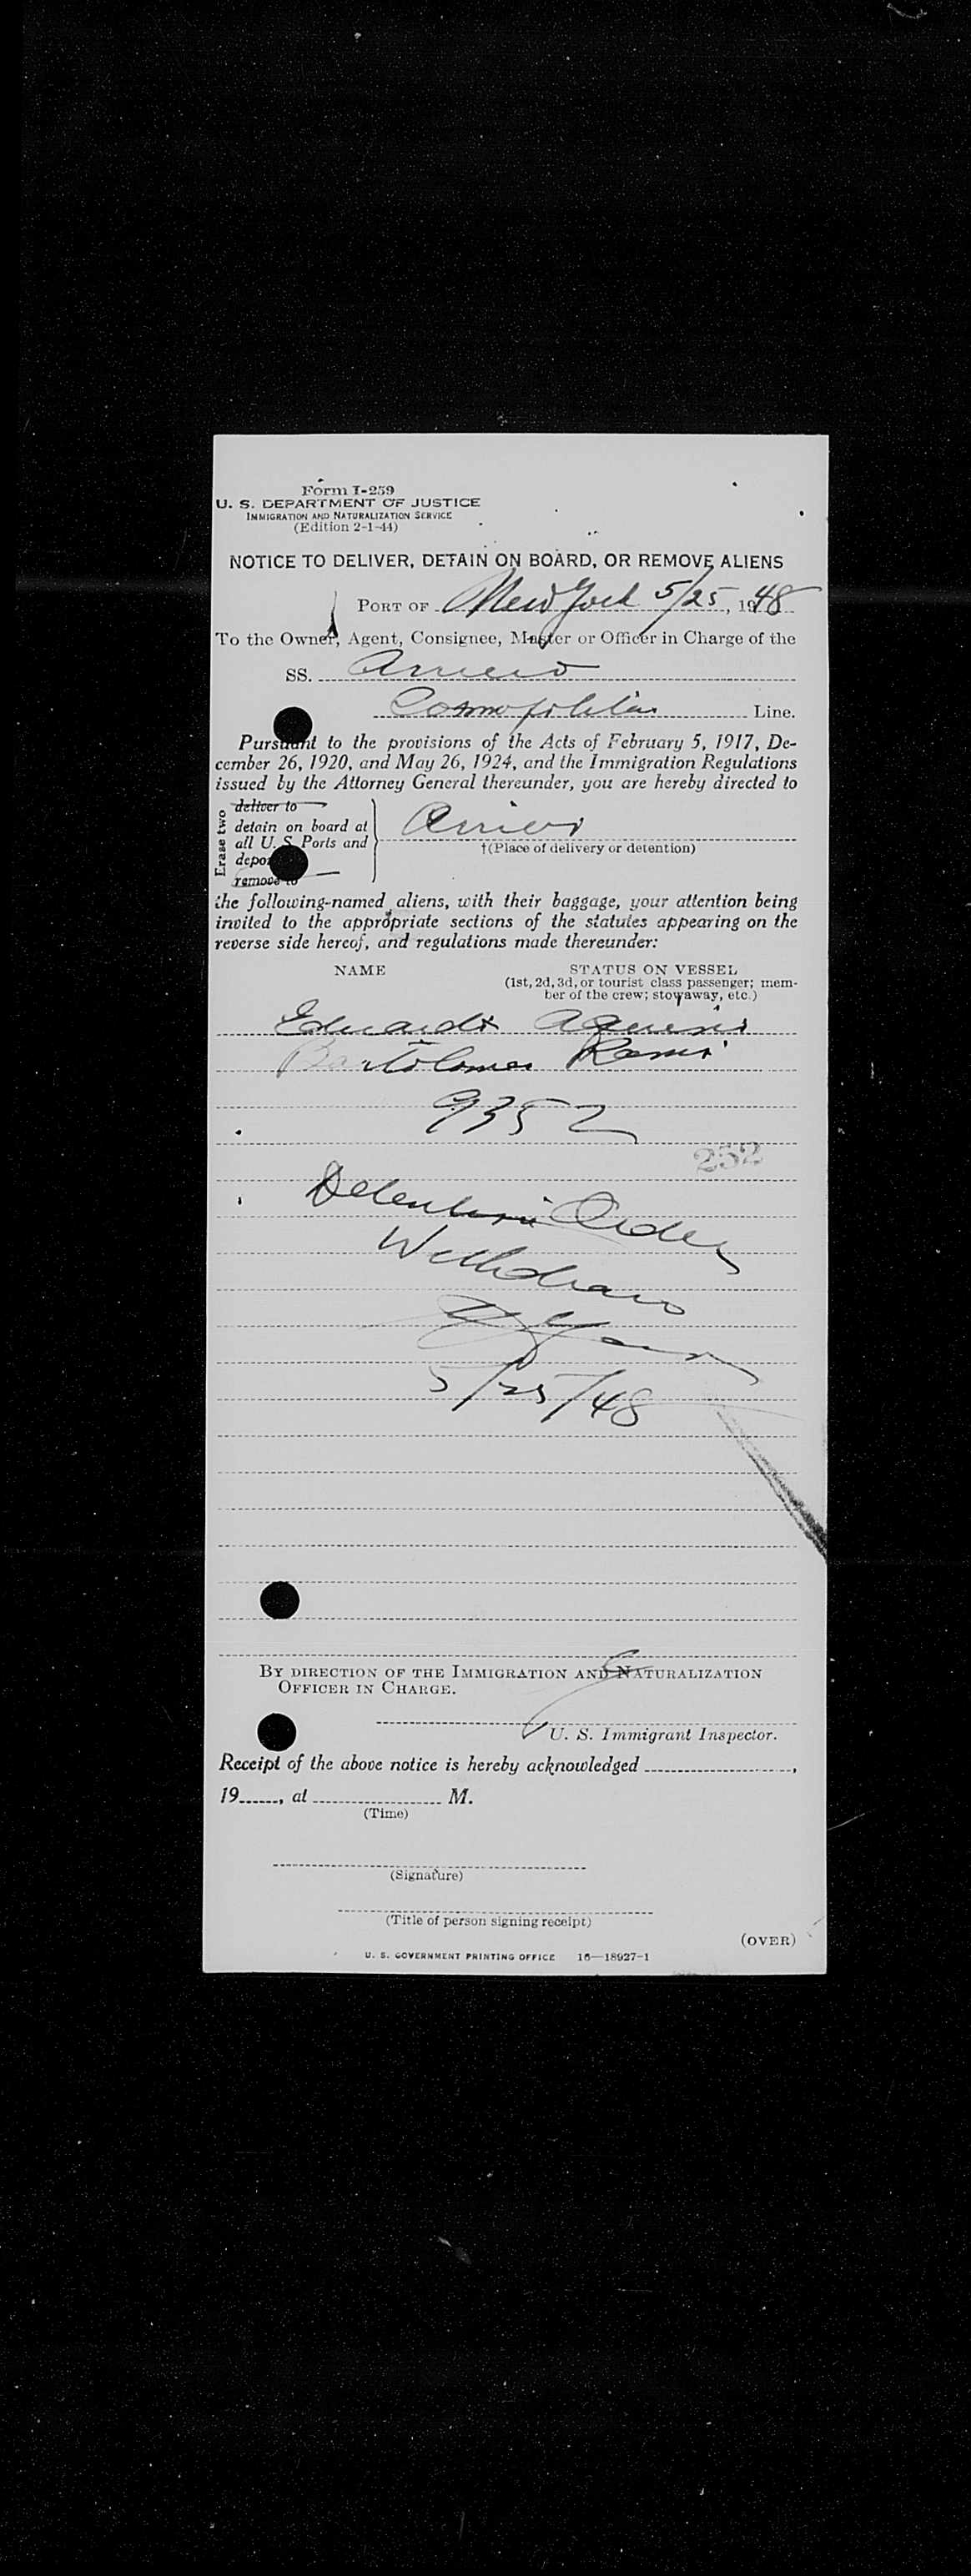 Form I-259
U. S. DEPARTMENT OF JUSTICE
IMMIGRATION AND NATURALIZATION SERVICE
(Edition 2-1-44)
NOTICE TO DELIVER, DETAIN ON BOARD, OR REMOVE ALIENS
PORT OF New York 5/25, 1948
To the Owner, Agent, Consignee, Master or Officer in Charge of the
SS.
Cosmopolitan Line.
Pursuant to the provisions of the Acts of February 5, 1917, De-
cember 26, 1920, and May 26, 1924, and the Immigration Regulations
issued by the Attorney General thereunder, you are hereby directed to
Erase two
deliver to
detain on board at
all U. S. Ports and
deport
remove to
†(Place of delivery or detention)
the following-named aliens, with their baggage, your attention being
invited to the appropriate sections of the statutes appearing on the
reverse side hereof, and regulations made thereunder:
NAME STATUS ON VESSEL
(1st, 2d, 3d, or tourist class passenger; mem-
ber of the crew; stowaway, etc.)
Eduardo
Bartolomeo
9352
252
Detention Order
Withdrawn
5/25/48
BY DIRECTION OF THE IMMIGRATION AND NATURALIZATION
OFFICER IN CHARGE.
U. S. Immigrant Inspector.
Receipt of the above notice is hereby acknowledged ,
19 , at M.
(Time)
(Signature)
(Title of person signing receipt)
(OVER)
U. S. GOVERNMENT PRINTING OFFICE 16—18927-1